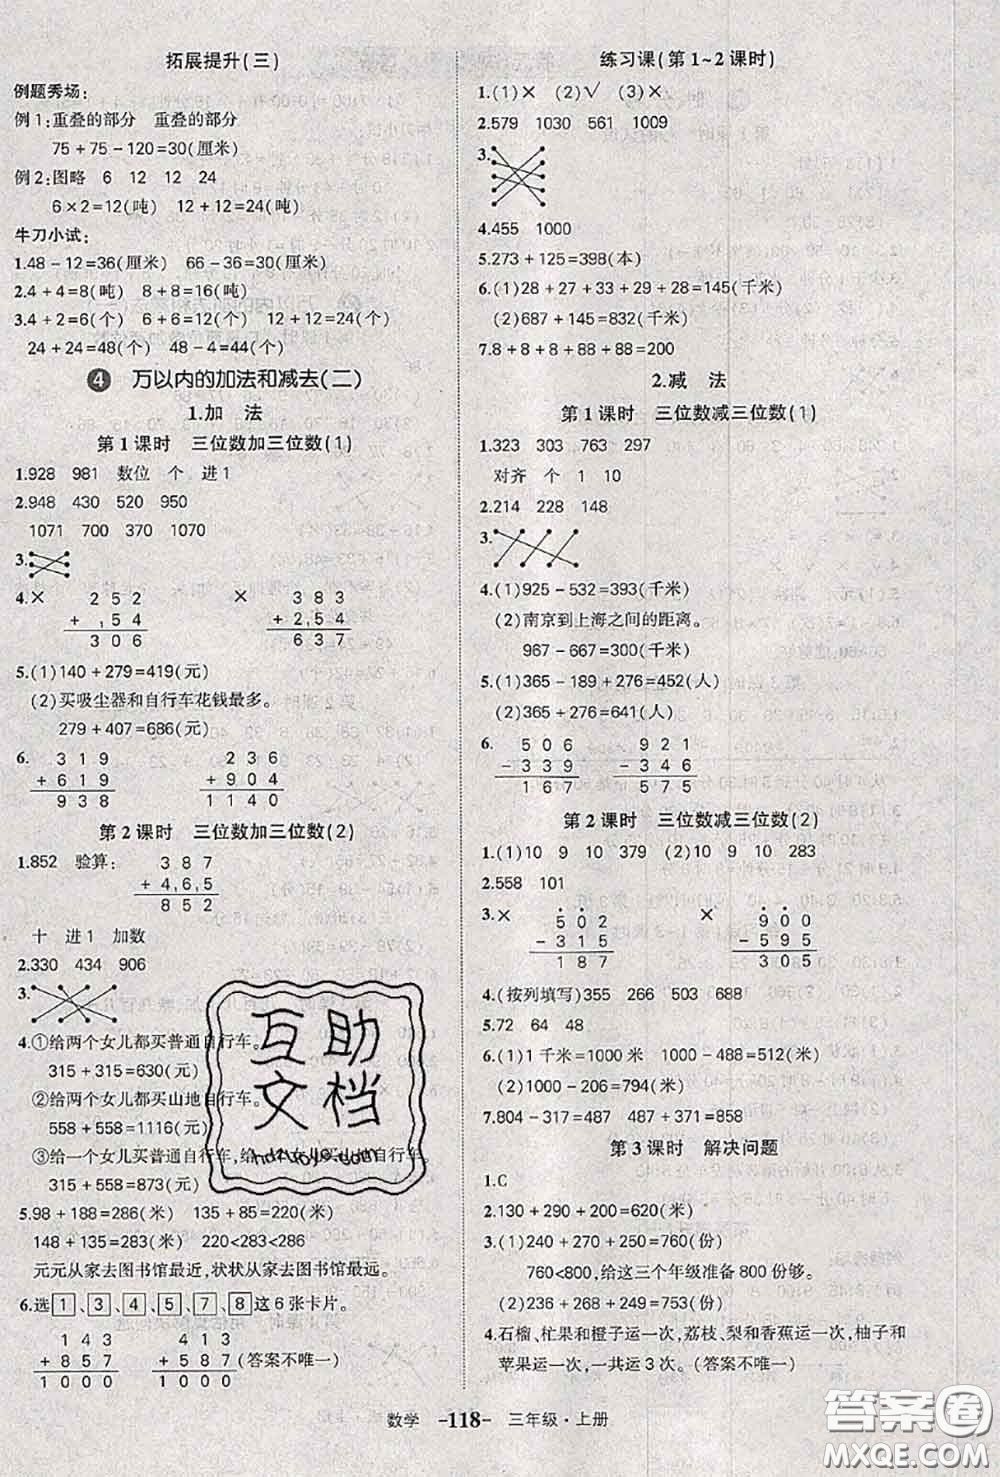 拓展提升(三)
例题秀场:
例1:重叠的部分 重叠的部分
75+75-120=30(厘米)
例2:图略 6 12 12 24
6×2=12(吨) 12+12=24(吨)
牛刀小试:
1.48-12=36(厘米) 66-36=30(厘米)
2.4+4=8(吨) 8+8=16(吨)
3.4+2=6(个) 6+6=12(个) 12+12=24(个)
24+24=48(个) 48-4=44(个)
4 万以内的加法和减去(二)
1.加 法
第1课时 三位数加三位数(1)
1.928 981 数位 个 进1
2.948 430 520 950
1071 700 370 1070
3.
4.× 252 × 383
+ 54 + 254
306 637
5.(1)140+279=419(元)
(2)买吸尘器和自行车花钱最多。
279+407=686(元)
6. 319 236
+619 +904
938 1140
第2课时 三位数加三位数(2)
1.852 验算: 387
+465
852
十 进1 加数
2.330 434 906
3.
4.①给两个女儿都买普通自行车。
315+315=630(元)
②给两个女儿都买山地自行车。
558+558=1116(元)
③给一个女儿买普通自行车,给一个女儿买山地自行车。
315+558=873(元)
5.98+188=286(米) 135+85=220(米)
148+135=283(米) 220<283<286
元元从家去图书馆最近,状状从家去图书馆最远。
6.选1、3、4、5、7、8这6张卡片。
143 413
+857 +587 (答案不唯一)
1000 1000
练习课(第1~2课时)
1.(1)× (2)√ (3)×
2.579 1030 561 1009
3.
4.455 1000
5.273+125=398(本)
6.(1)28+27+33+29+28=145(千米)
(2)687+145=832(千米)
7.8+8+8+88+88=200
2.减 法
第1课时 三位数减三位数(1)
1.323 303 763 297
对齐 个 1 10
2.214 228 148
3.
4.(1)925-532=393(千米)
(2)南京到上海之间的距离。
967-667=300(千米)
5.(1)365-189+276=452(人)
(2)365+276=641(人)
6. 506 921
-339 -346
167 575
第2课时 三位数减三位数(2)
1.(1)10 9 10 379 (2)10 9 10 283
2.558 101
3.× 502 × 900
-315 -595
187 305
4.(按列填写)355 266 503 688
5.72 64 48
6.(1)1千米=1000米 1000-488=512(米)
(2)1000-206=794(米)
7.804-317=487 487+371=858
第3课时 解决问题
1.C
2.130+290+200=620(元)
3.(1)240+270+250=760(份)
760<800,给这三个年级准备800份够。
(2)236+268+249=753(份)
4.石榴、杧果和橙子运一次,荔枝、梨和香蕉运一次,柚子和
苹果运一次,一共运3次。(答案不唯一)
互助
文档
hdzuoye.com
数学 -118- 三年级·上册
答案圈
MXQE.COM